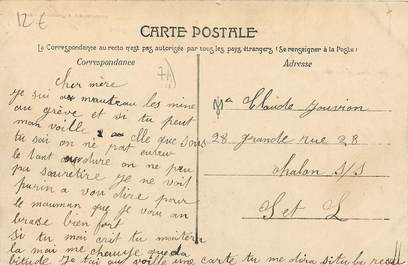 12 €
CARTE POSTALE
La Correspondance au recto n'est pas autorisée par tous les pays étrangers (Se renseigner à la Poste)
Correspondance
Adresse
cher mère
je sui au les mine
ou grève et si tu peut
man voille elle que sous
tu sai on ne pat
le tant dure on ne peu
pa je ne voit
rin a vou dire pour
le mauman que je vou an
brase bien fort
Si tu mai crit tu
la mai me
bitude je fai voille une carte tu me dira situ la resu
Claude Jouvion
28 grande rue 28
Chalon s/s
S et L